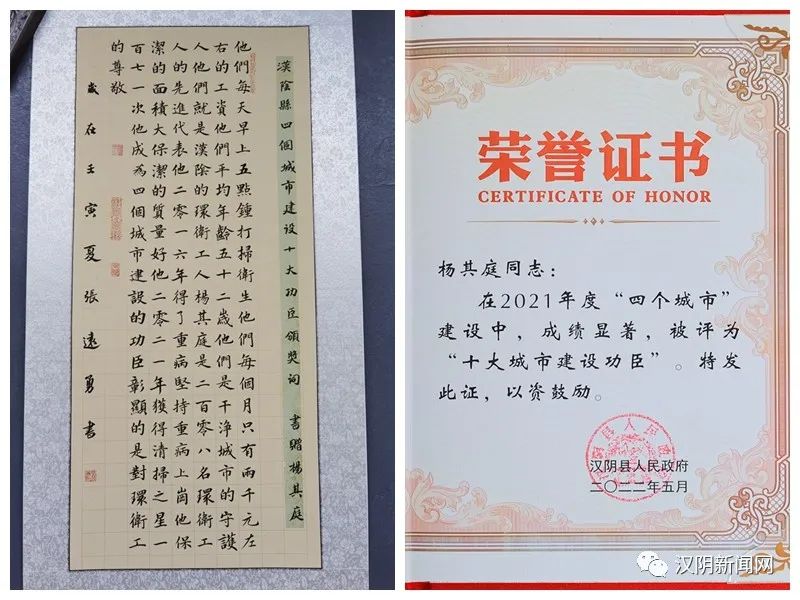 漢陰縣四個城市建設十大功臣頒獎詞 書贈楊其庭
他們每天早上五點鐘打掃衛生他們每個月只有兩千元左
右的工資他們平均年齡五十二歲他們是干净城市的守護
人他們就是漢陰的環衛工人楊其庭是二百零八名環衛工
人的先進代表他二零一六年得了重病堅持重病上崗他保
潔的面積大保潔的質量好他二零二一年獲得清掃之星一
百七一次他成為四個城市建設的功臣彰顯的是對環衛工
的尊敬
歲在壬寅夏張遠勇書
荣誉证书
CERTIFICATE OF HONOR
杨其庭同志：
在2021年度“四个城市”
建设中，成绩显著，被评为
“十大城市建设功臣”。特发
此证，以资鼓励。
汉阴县人民政府
二〇二二年五月
汉阴新闻网